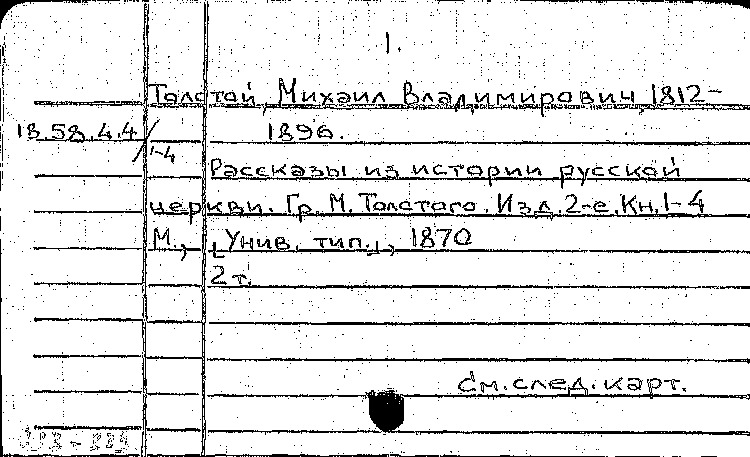 1.
Толстой, Михаил Владимирович, 1812-
18.58.4.4/1-4 1896.
Рассказы из истории русской
церкви. Гр. М. Толстого. Изд. 2-е. Кн. 1-4
М., [Унив. тип.], 1870
2 т.
См. след. карт.